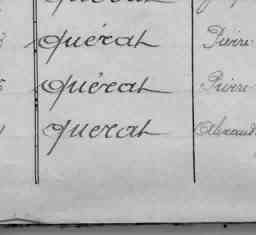 Quérat Pierre
Quérat Pierre
Querat Alexand